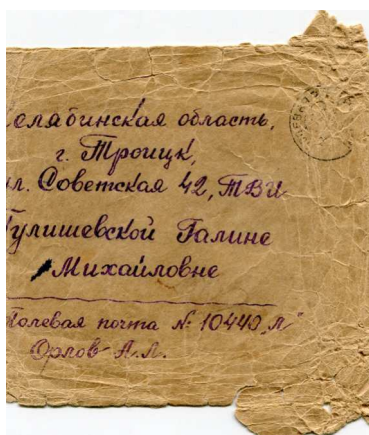 елябинская область,
г. Троицк,
ул. Советская 42, ТВИ
Гулишевской Галине
Михайловне
Полевая почта № 10440 „Л"
Орлов А.Л.